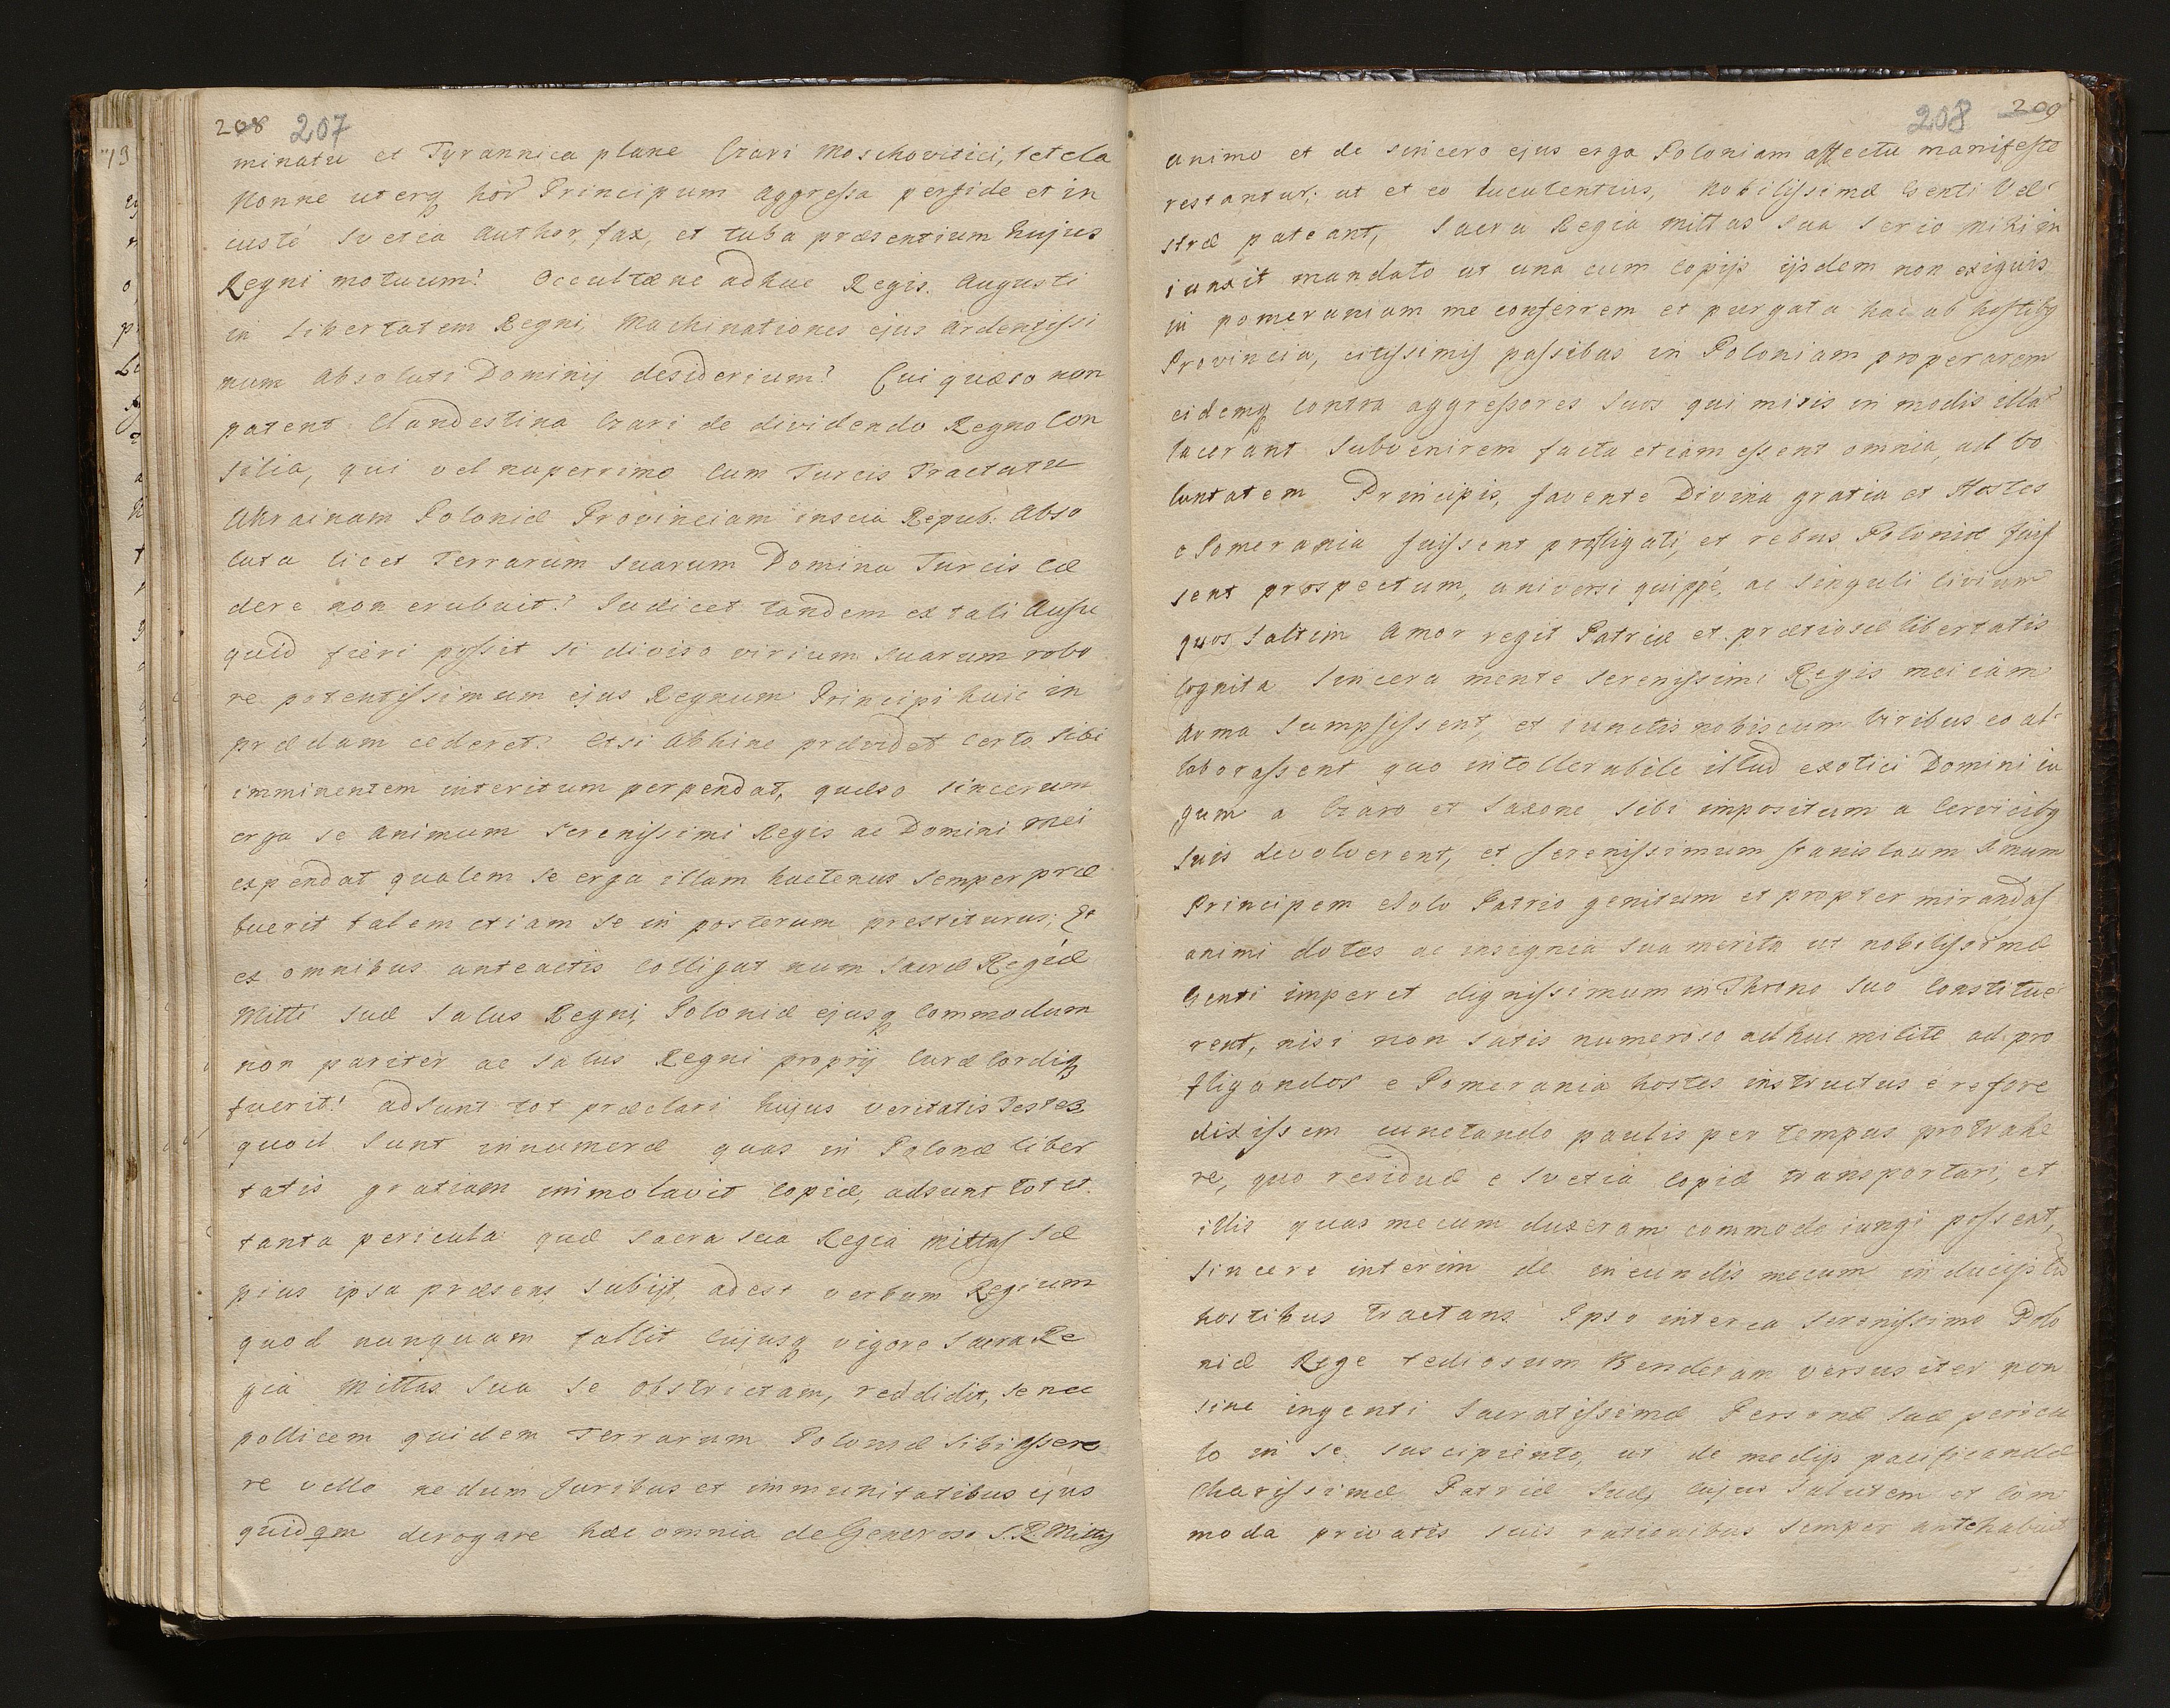 208 207
minatu et Tyrannica plane Czari Moschovitici, tetela
Nonne uterq hor Principum aggressa perfide et in
custé Svetia Author, fax, et tuba præsentium hujus
Regni motuum? Occultæne adhuc Regis Augusti
in Libertatem Regni, Machinationes ejus ardentissi
mum absoluti Dominij desiderium? Cui quæso non
patent Clandestina Czari de dividendo Regno Con
silia, qui vel nuperrimo cum Turcis Tractatu
Ukrainam Poloniæ Provinciam inscia Repub: abso
luta licet Terrarum suarum Domina Turcis cæ
dere non erubuit? Judicet tandem ex tali Ausu
quid fieri possit si diviso virium suarum robo
re potentissimum ejus Regnum Principi huic in
prædam cederet? Etsi abhinc prævidet certo sibi
imminentem interitum perpendat, quæso sincerum
erga se animum Serenissimi Regis ac Domini mei
expendat qualem se erga illam hactenus semper præ
buerit talem etiam se in posterum prestiturus; Et
ex omnibus anteactis colligat num Sacræ Regiæ
Mitti suæ salus Regni, Poloniæ ejusq commodum
non pariter ac salus Regni proprij curæ cordiq
fuerit? adsunt tot præclari hujus veritatis Testes,
quod sunt innumeræ quas in Polonæ liber
tatis gratiam immolavit copiæ, adsunt tot et
tanta pericula quæ Sacra sua Regia Mittas sæ
pius ipsa præsens subijt, adest verbum Regium
quod nunquam fallit cujusq vigore Sacra Re
gia Mittas sua se obstrictam, reddidit, se nec
pollicem quidem Terrarum Polonæ sibi assere
re velle nedum Juribus et immunitatibus ejus
quidqm derogare hæc omnia de Generoso S. R. Mittis
208 209
animo et de sincero ejus erga Poloniam affectu manifeste
testantur; ut et eo luculentius, nobilissimæ Genti Ve
stræ pateant, Sacra Regia Mittas sua serio mihi in
iunxit mandato ut una cum copijs ijsdem non exiguis
in pomeraniam me conferrem et purgata hac ab hostibq
Provincia, citissimis passibus in Poloniam properarem
eidemq contra aggressores suos qui miris in modis illa
lacerant subvenirem facta etiam essent omnia, ad vo
luntatem Principis, favente Divina gratia et Hostes
e Pomerania fuissent profligati, et rebus Poloniæ fuis
sent prospectum, universi quippé, ac singuli civium
quos saltim Amor regit Patriæ et prætiosæ libertatis
Cognita sincera mente Serenissimi Regis mei iam
Arma sumpsissent, et iunctis nobiscum viribus eo al
laborassent quo intollerabile illud exotici Domini iu
gum a Czaro et Saxone sibi impositum a Cervicibq
suis devolverent, et Serenissimum Stanislaum Imum
Principem e Solo Patrio genitum et propter mirandas
animi dotes ac insignia sua merito ut nobilissimæ
Genti imperet dignissimum in Throno suo Constitue
rent, nisi non satis numeroso adhuc milite ad pro
fligandos e Pomerania hostes instructus e re fore
dixissem cunctando paulisper tempus protrahe
re, quo residuæ e Svetia copiæ transportari, et
illis quas mecum duxeram commode iungi possent,
sincere interim de ineundis mecum inducijs cu
hostibus tractans Ipso interea Serenissimo Polo
niæ Rege tediosum Benderam versus iter non
sine ingenti Sacratissimæ Personæ suæ pericu
lo in se suscipiente, ut de medijs pacificandæ
Charissimæ Patriæ suæ, cujus salutem et com
moda privatis suis rationibus semper antehabuit